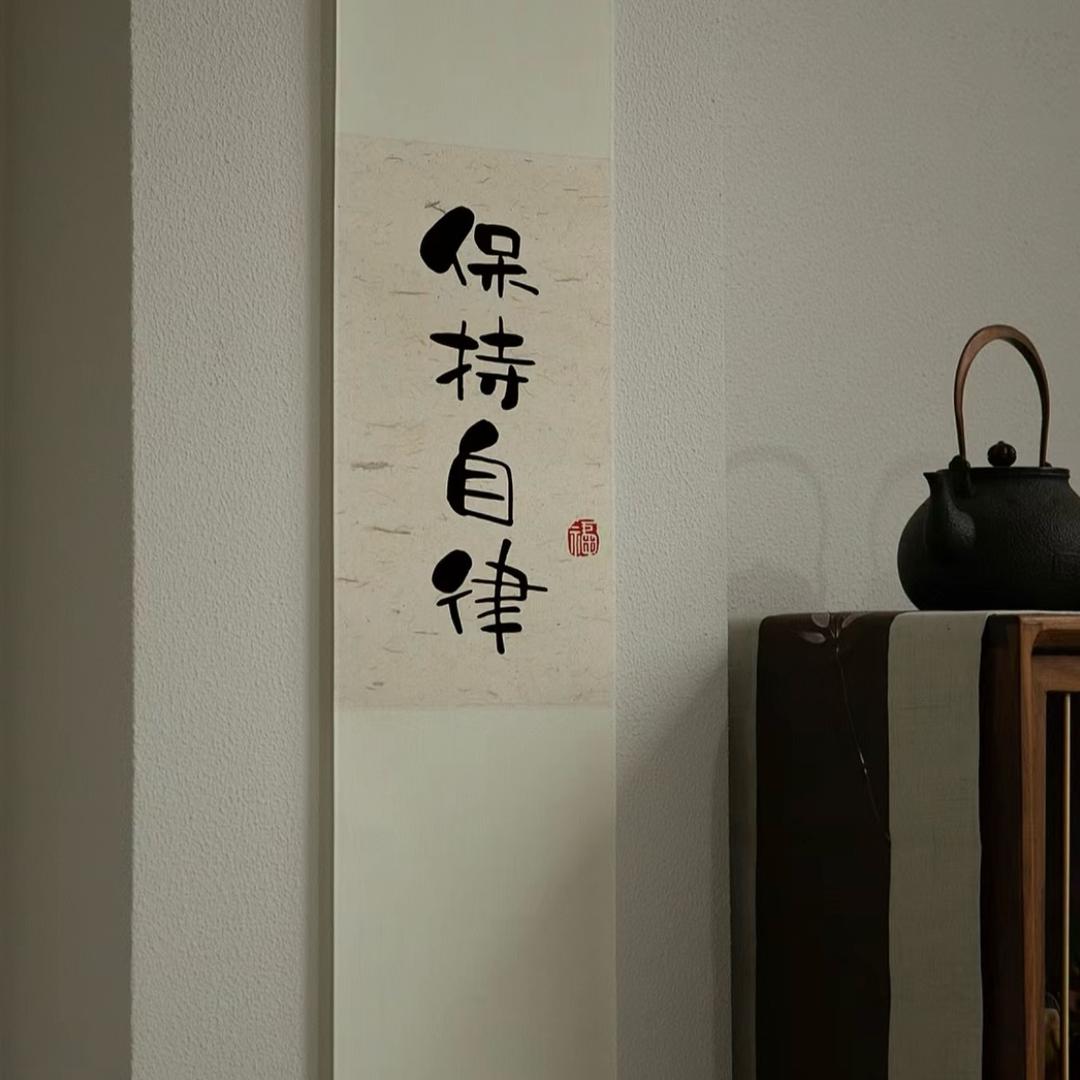 保持自律
福